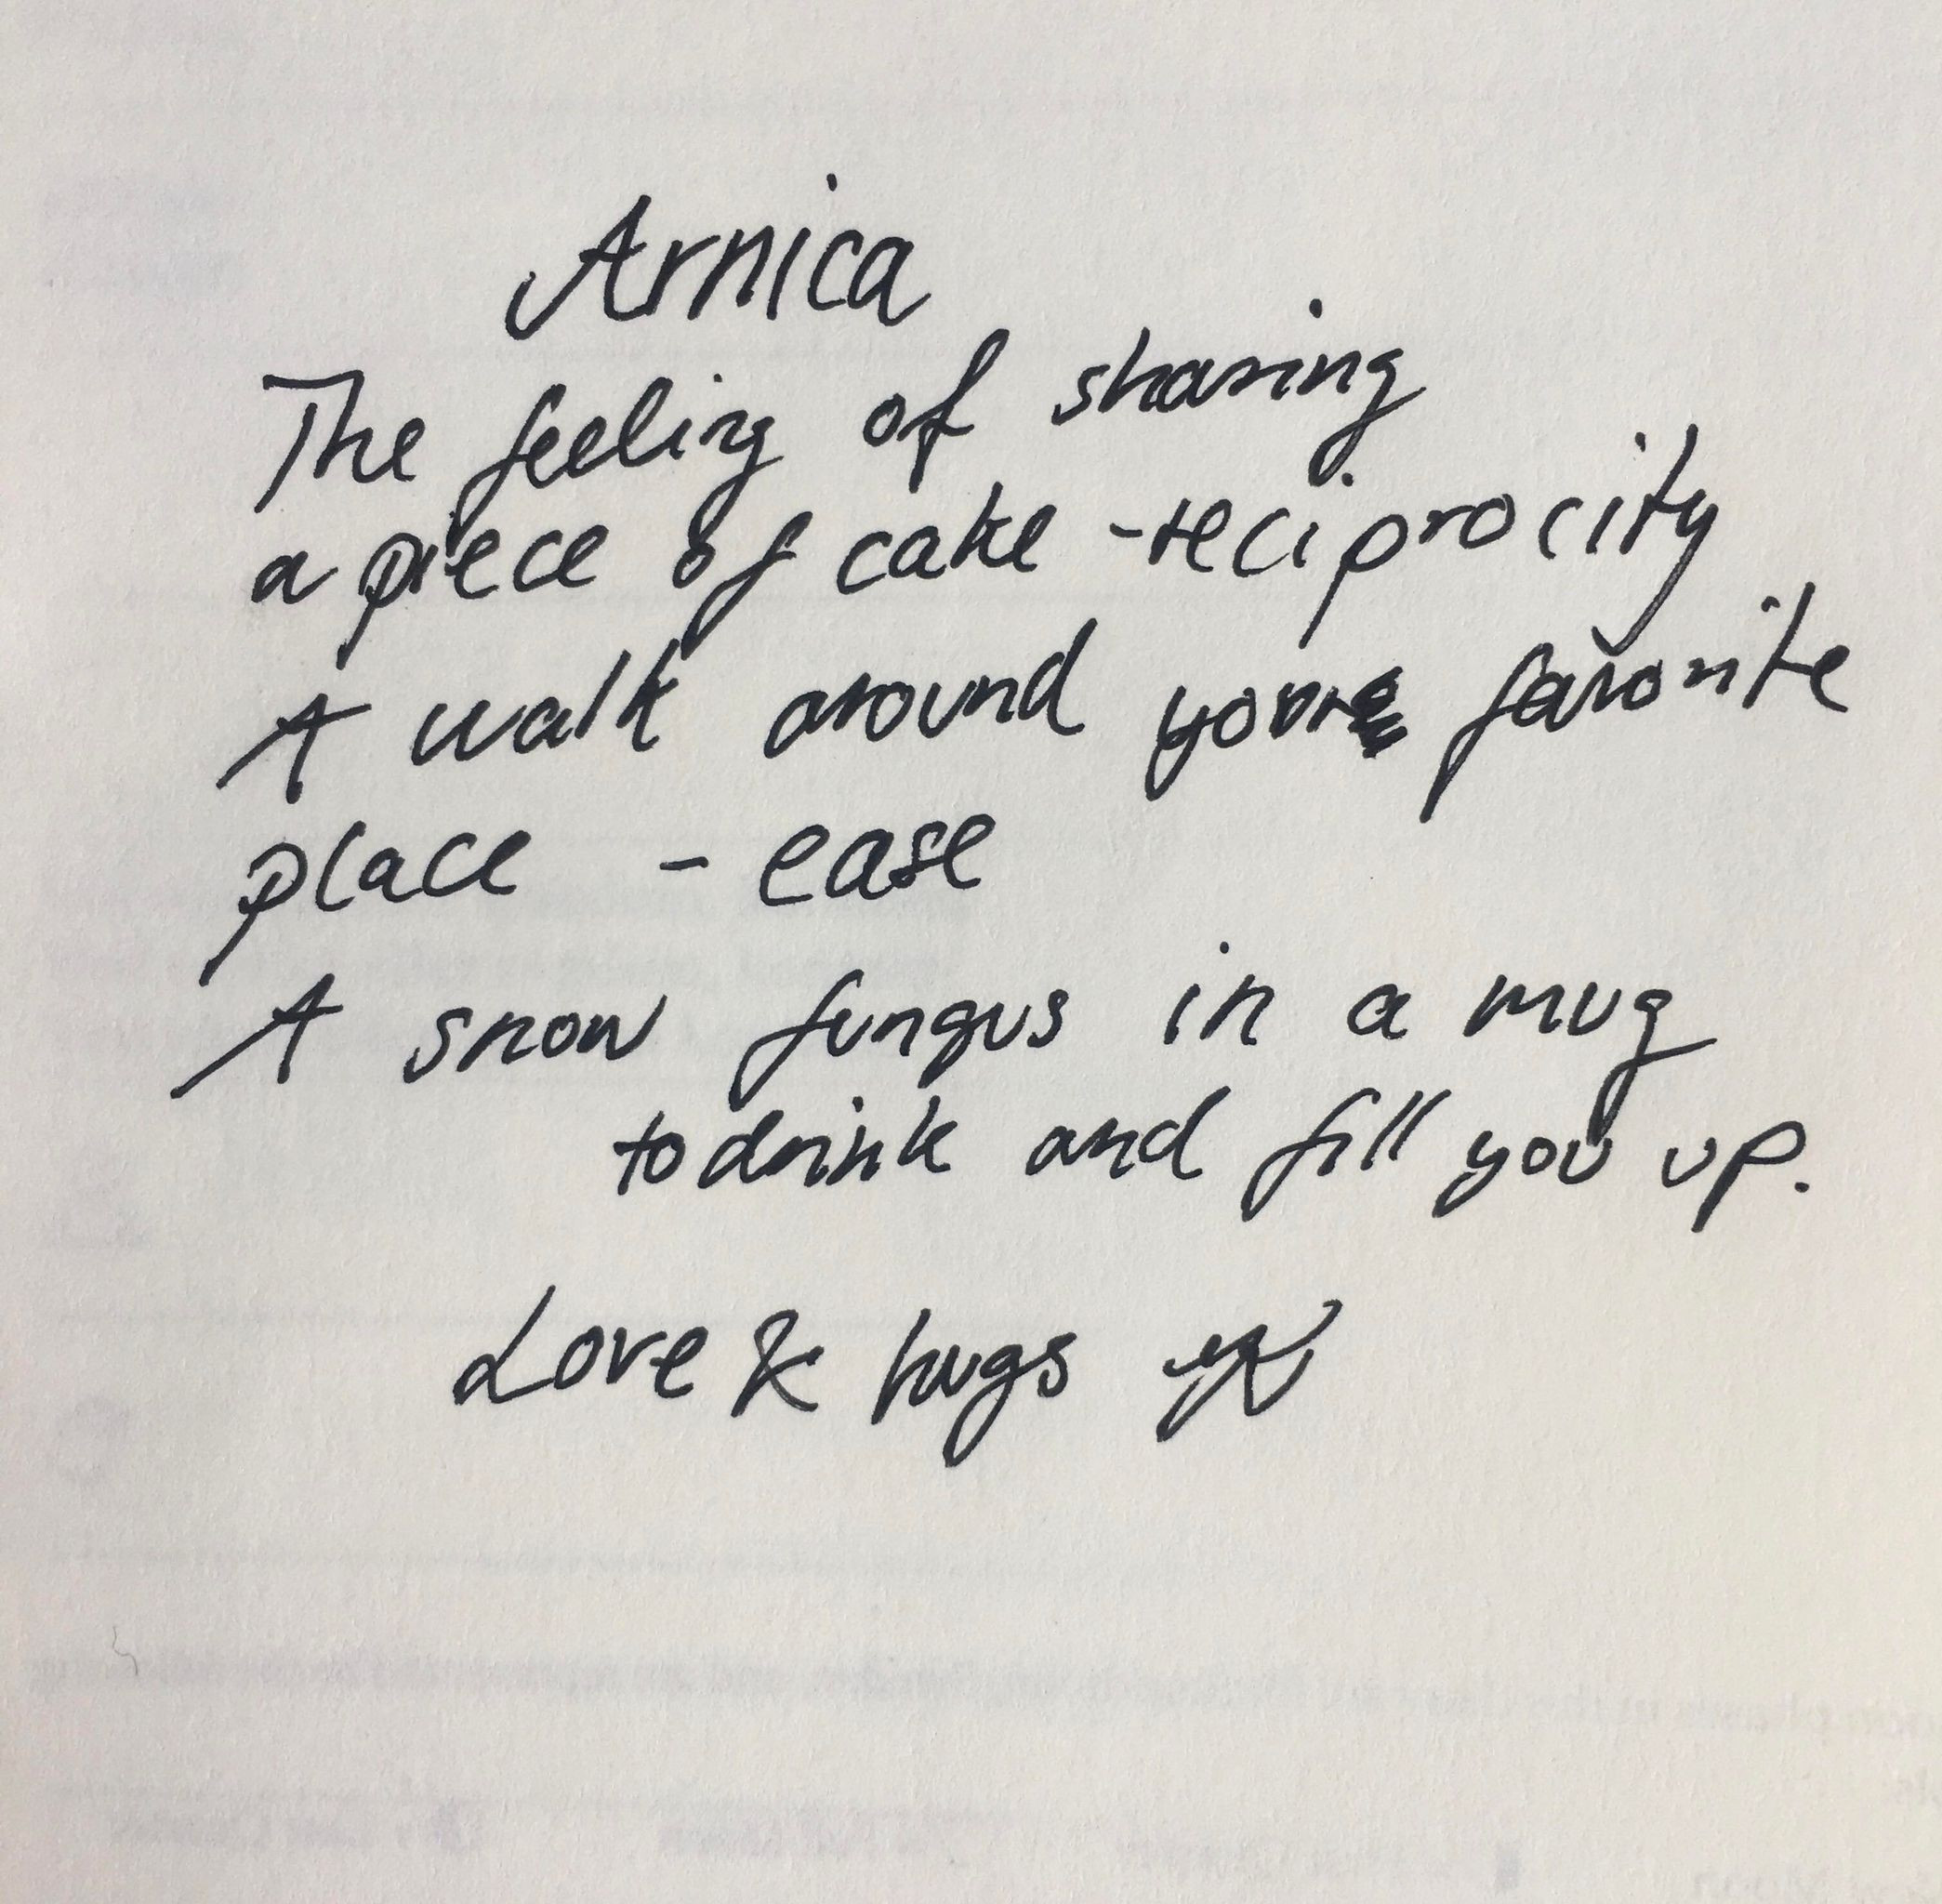 Arnica
The feeling of sharing
a piece of cake - reciprocity
A walk around your favorite
place - ease
A snow fungus in a mug
to drink and fill you up.
Love & hugs